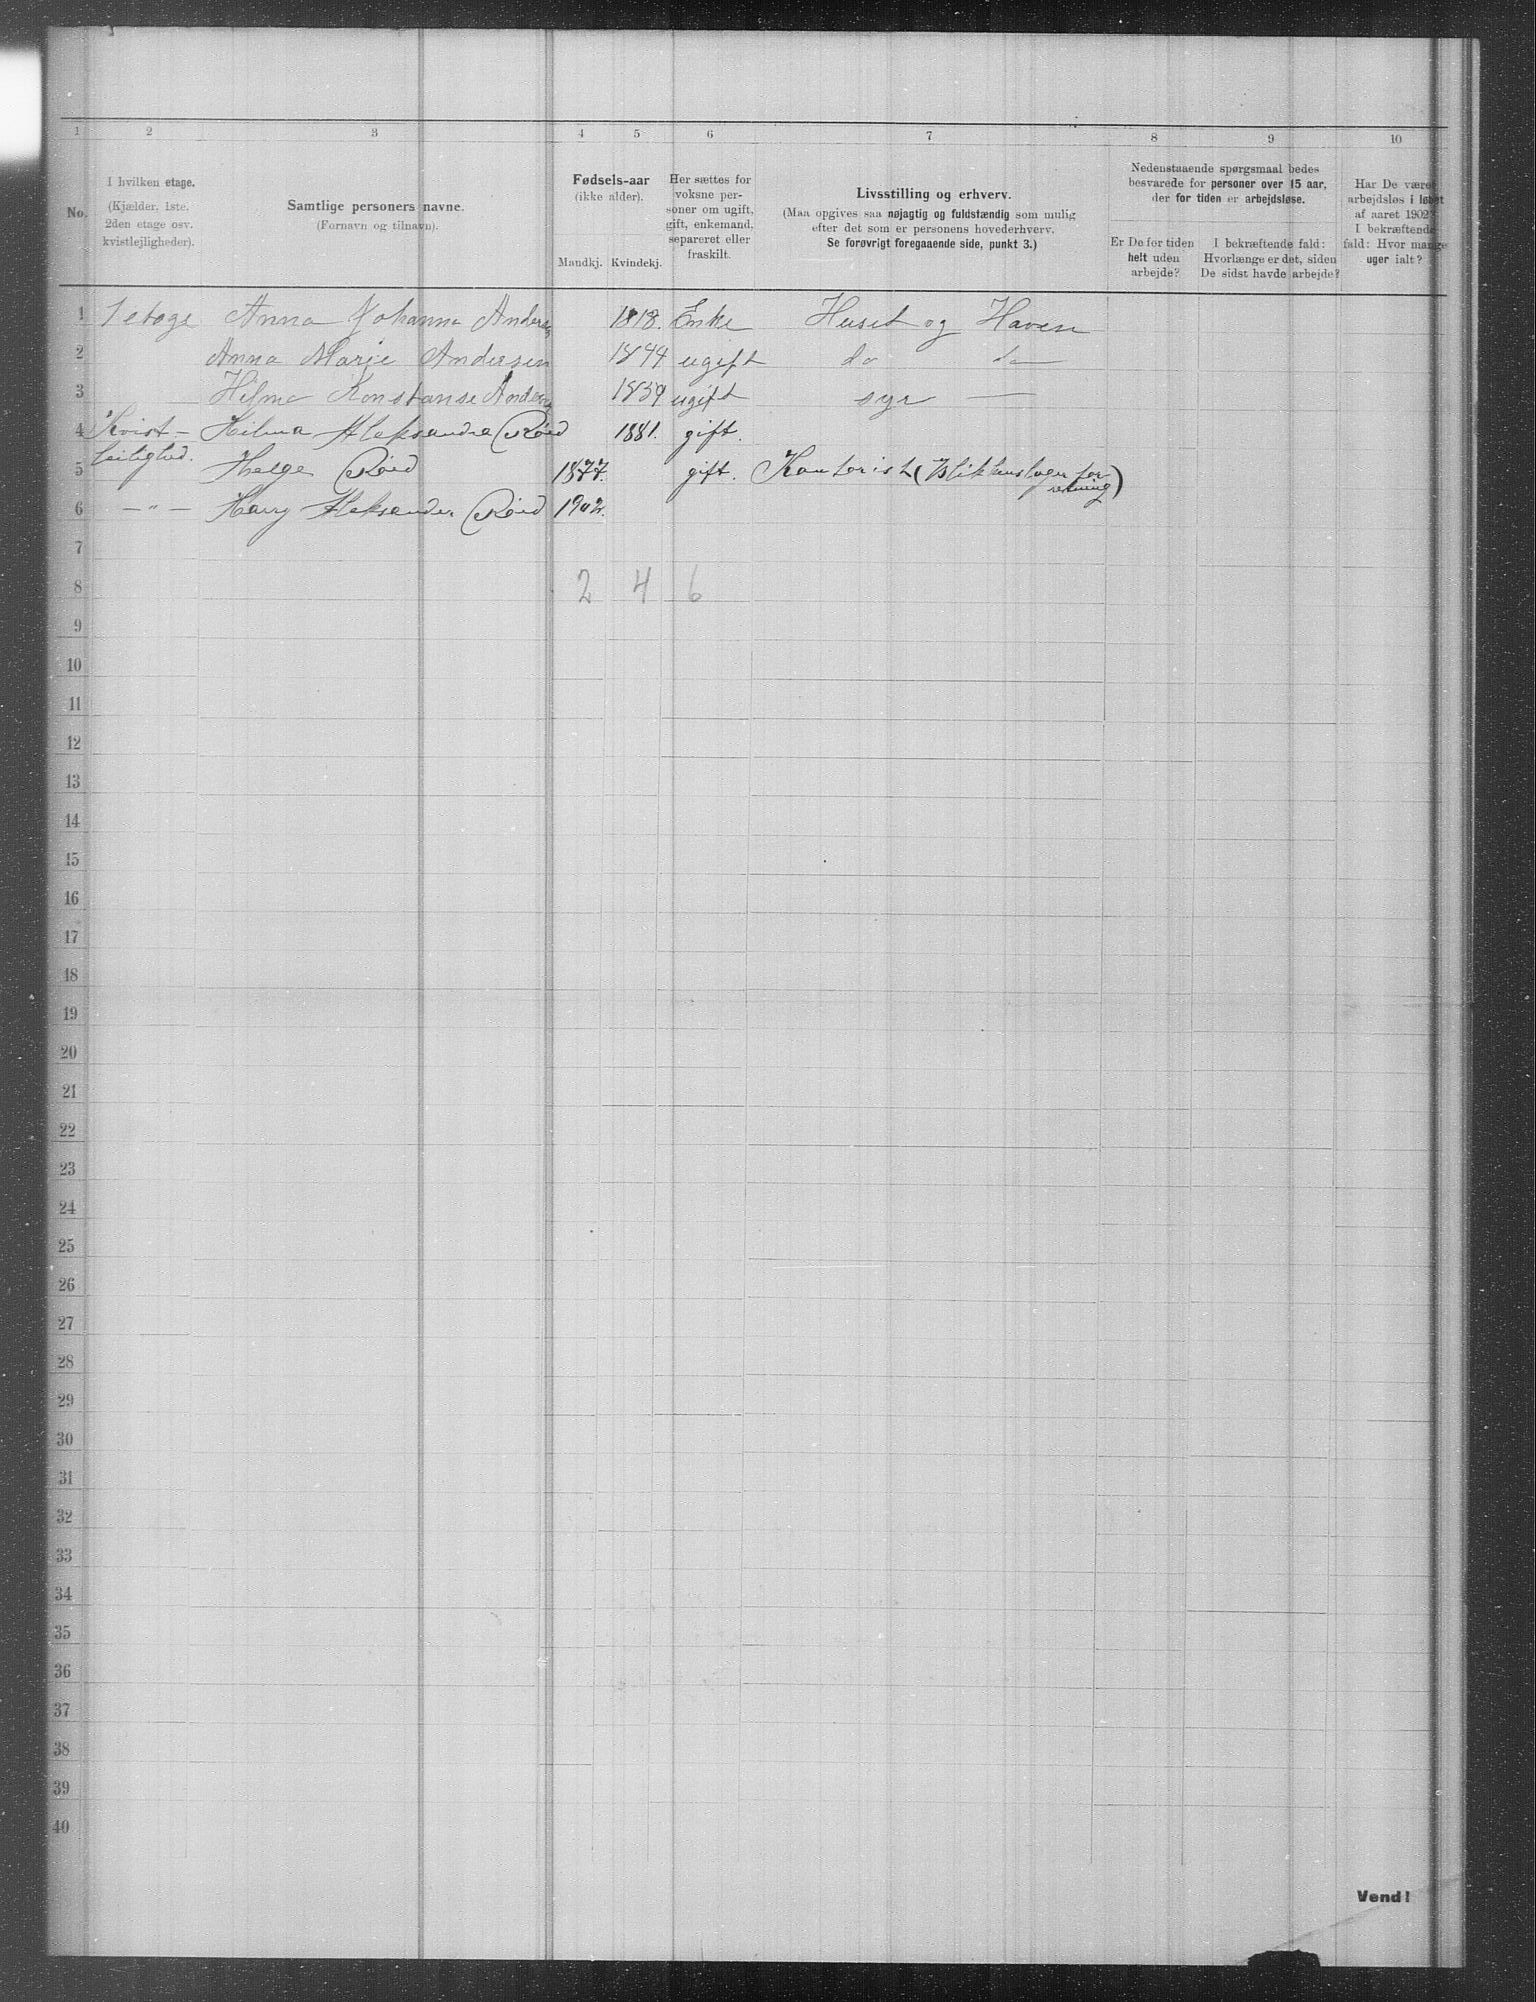 1 2 3 4 5 6 7 8 9 10
No.
I hvilken etage.
(Kjælder, 1ste.
2den etage osv.
kvistlejligheder).
Samtlige personers navne.
(Fornavn og tilnavn).
Fødsels-aar
(ikke alder).
Mandkj. Kvindekj.
Her sættes for
voksne per-
soner om ugift,
gift, enkemand,
separeret eller
fraskilt.
Livsstilling og erhverv.
(Maa opgives saa nøjagtig og fuldstændig som mulig
efter det som er personens hovederhverv.
Se forøvrigt foregaaende side, punkt 3.)
Nedenstaaende spørgsmaal bedes
besvarede for personer over 15 aar,
der for tiden er arbejdsløse.
Er De for tiden
helt uden
arbejde?
I bekræftende fald:
Hvorlænge er det, siden
De sidst havde arbejde?
Har De været
arbejdsløs i løbet
af aaret 1902?
I bekræftende
fald: Hvor mange
uger ialt?
1 1 etage Anna Johanna Andersen 1818 Enke Huset og Haven
2 Anna Marie Andersen 1844 ugift do do
3 Hilma Konstanse Andersen 1859 ugift syr —
4 Kvist- Hilma Aleksandra Röed 1881. gift.
leilighed.
5 Helge Röed 1877. gift. Kontorist (Blikkenslager for
retning)
6 — " — Harry Aleksander Röed 1902.
7
8 2 4 6
9
10
11
12
13
14
15
16
17
18
19
20
21
22
23
24
25
26
27
28
29
30
31
32
33
34
35
36
37
38
39
40
Vend!